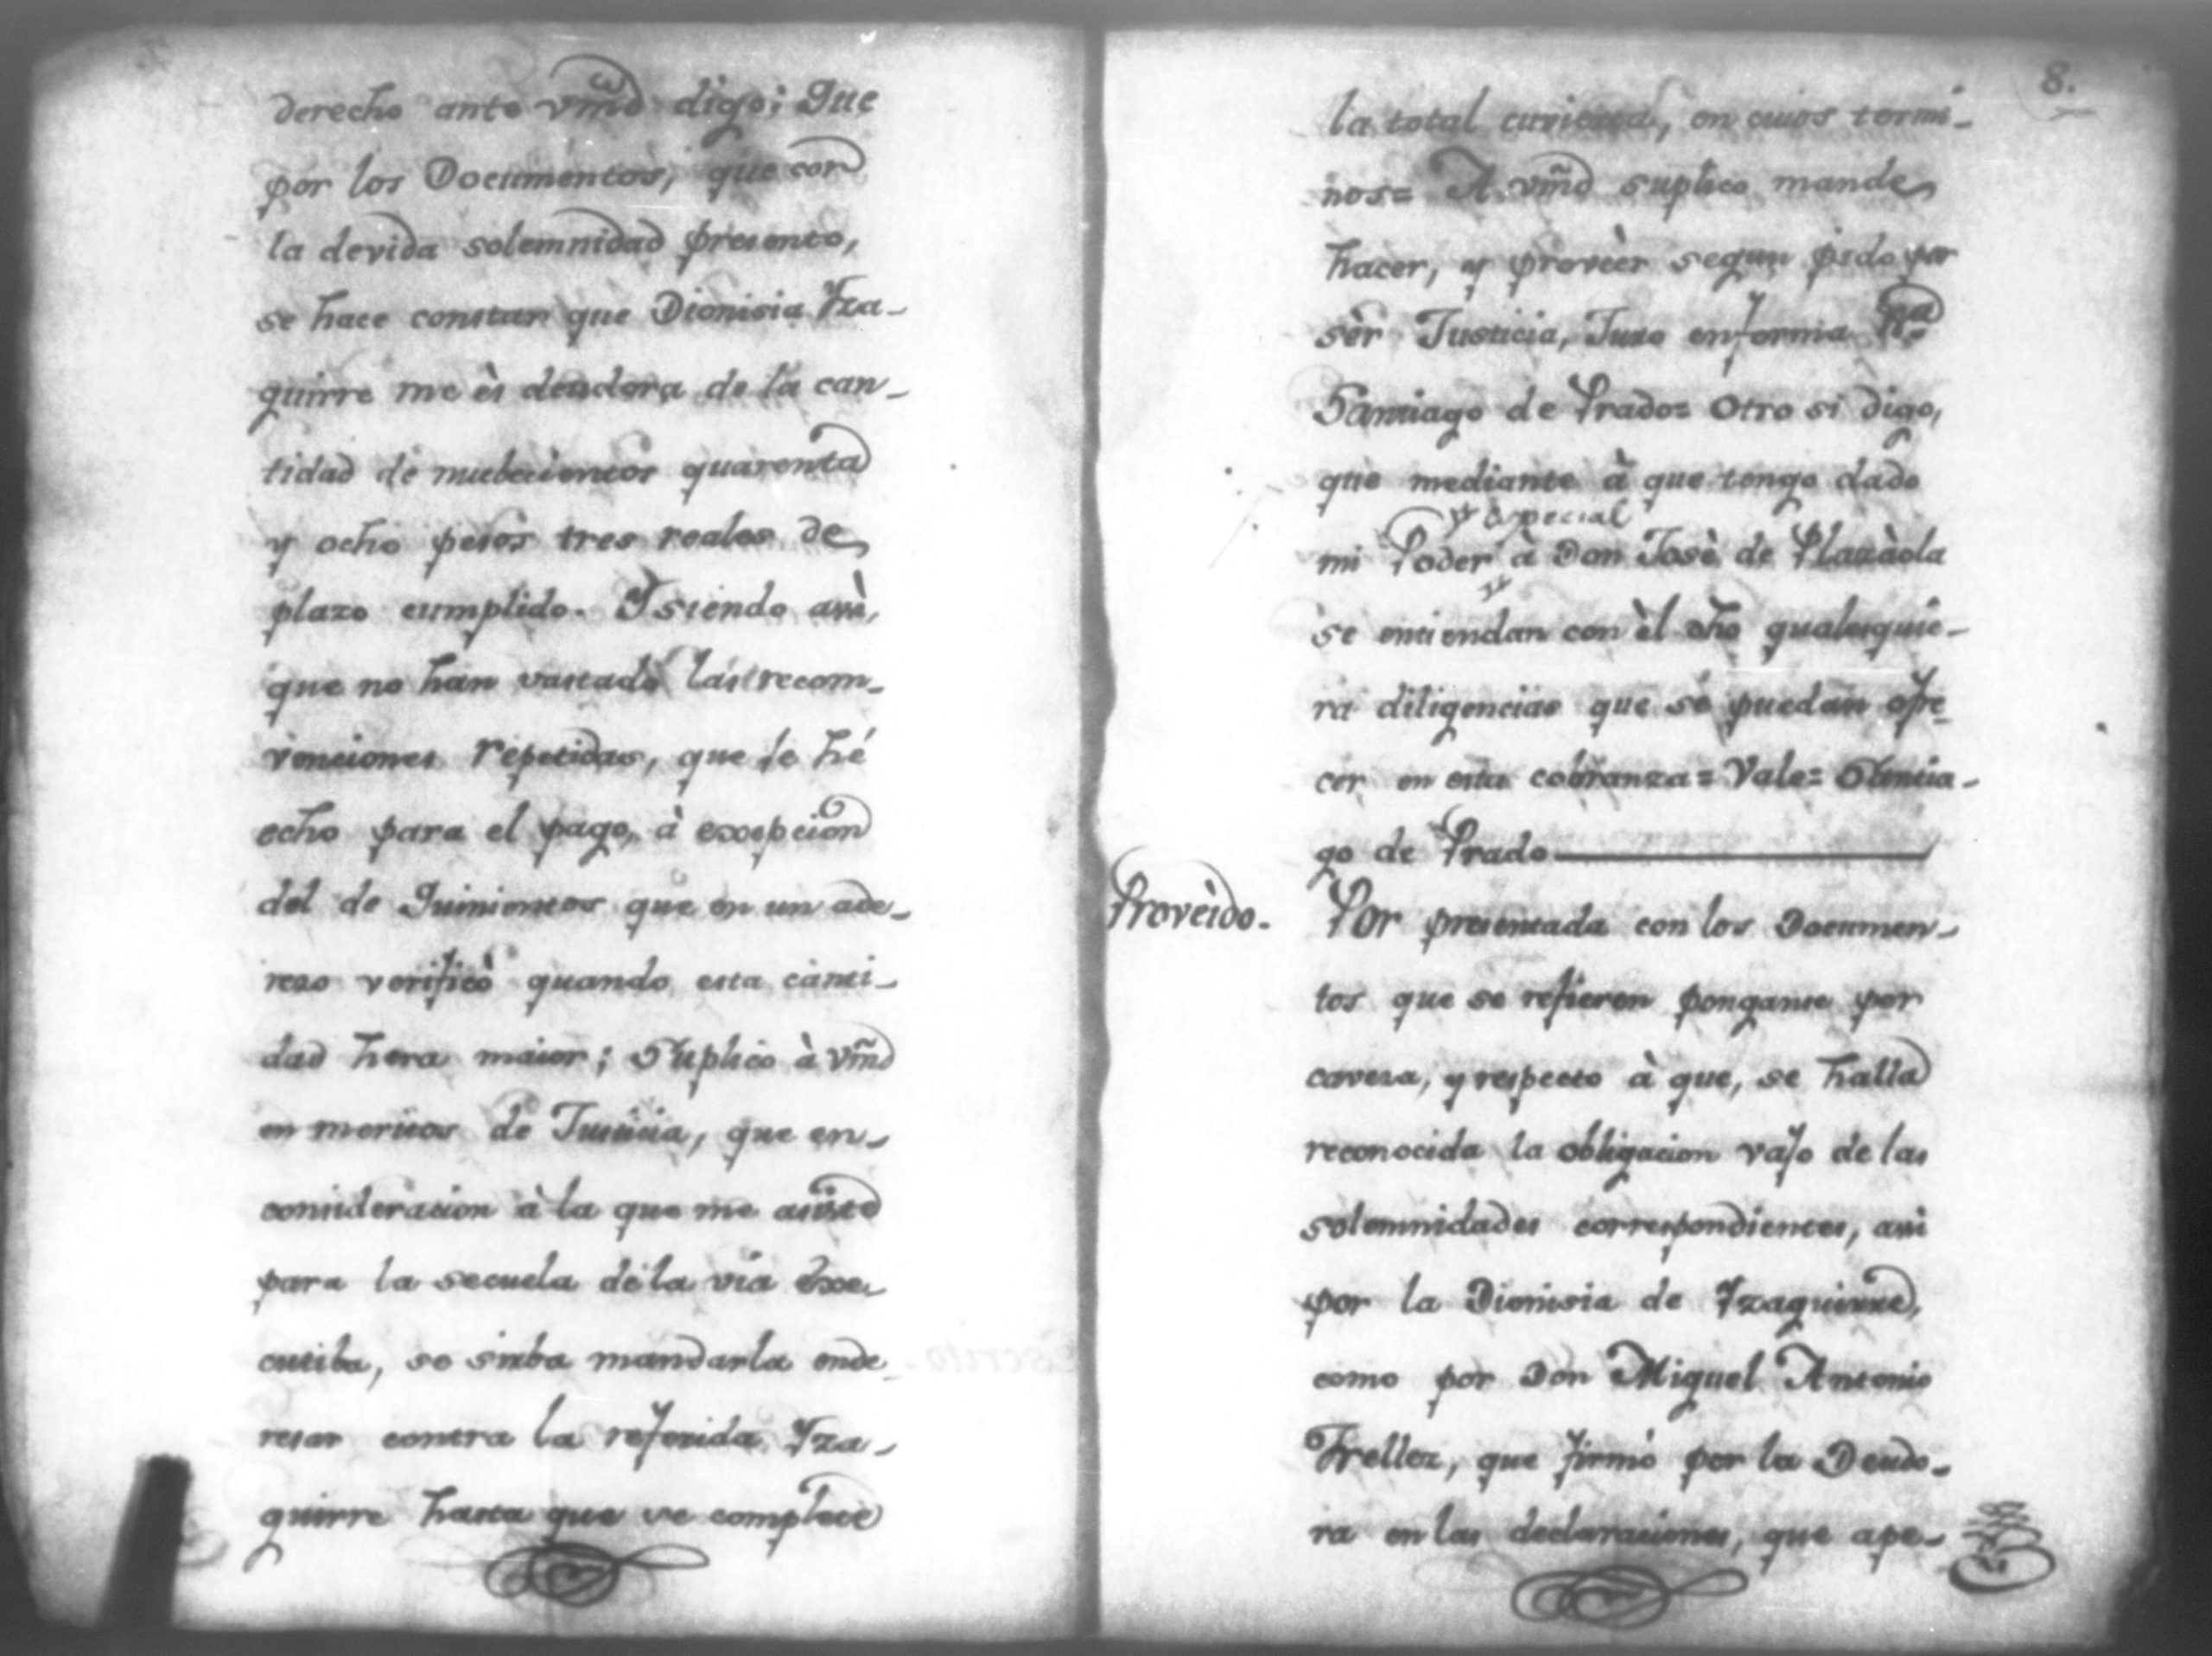 derecho ante vm̃d digo; Que
por los Documentos, que con
la devida solemnidad presento,
se hace constar que Dionisia Yza-
guirre me ès deudora de la can-
tidad de nuebecientos quarenta
y ocho pesos tres reales de
plazo cumplido. Y siendo asi,
que no han vastado las recom-
venciones repetidas, que le hé
echo para el pago, à excepcion
del de Quinientos que en un ade-
rezo verificò quando esta canti-
dad hera maior; Suplico à Vm̃d
en meritos de Justicia, que en
consideracion à la que me asiste
para la secuela de la via Exe-
cutiba, se sirba mandarla ende-
resar contra la referida Yza-
guirre hasta que se complete
8.
la total, en cuios termi-
nos= A vm̃d suplico mande
hacer, y proveèr segun pido por
sèr Justicia, Juro en forma
Santiago de Prado= Otro si digo,
que mediante à que tengo dado
y especial
mi Poder à Don Josè de Plazàola
se entiendan con èl dho qualesquie-
ra diligencias que se puedan ofre-
cer en esta cobranza= Vale= Santia-
go de Prado
Proveìdo. Por presentada con los Documen-
tos que se refieren ponganse por
caveza, y respecto à que, se halla
reconocida la obligacion vajo de las
solemnidades correspondientes, asi
por la Dionisia de Yzaguirre,
como por Don Miguel Antonio
Trellez, que firmò por la Deudo-
ra en las declaraciones, que ape-